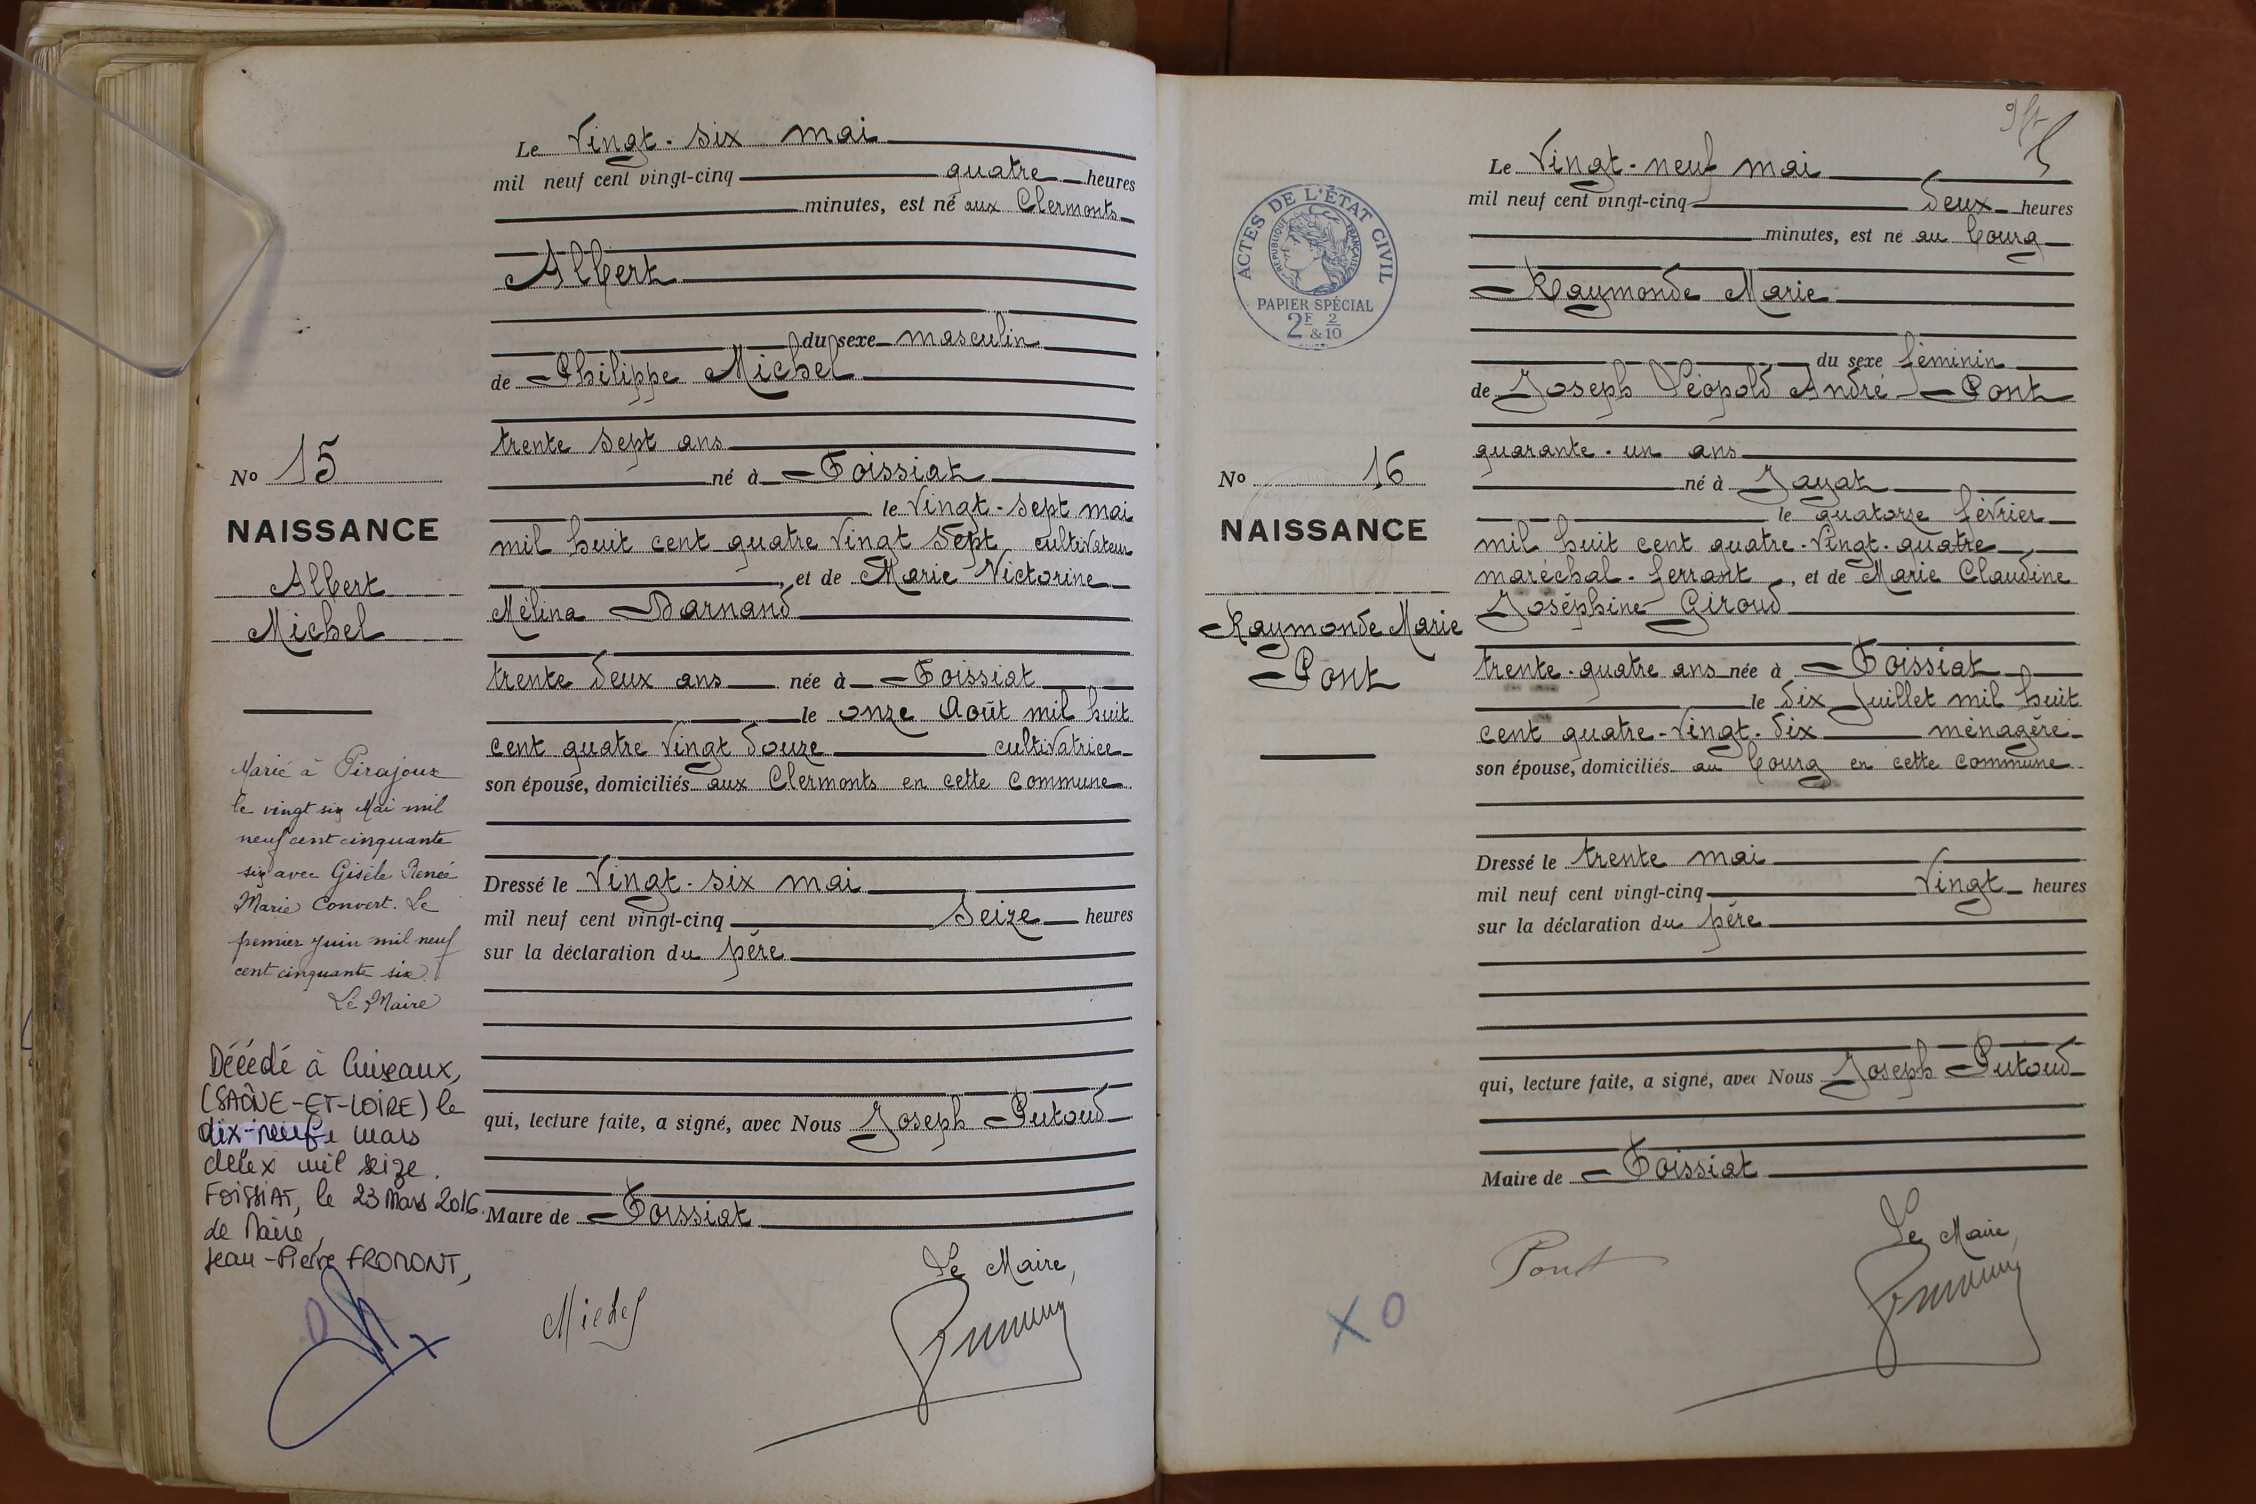 Le Vingt-six mai
mil neuf cent vingt-cinq quatre heures
minutes, est né aux Clermonts
Albert
du sexe masculin
de Philippe Michel
trente sept ans
né à Foissiat
le Vingt-sept mai
mil huit cent quatre Vingt Sept cultivateur
, et de Marie Victorine
Mélina Darnand
trente deux ans née à Foissiat
le onze Août mil huit
cent quatre Vingt douze cultivatrice
son épouse, domiciliés aux Clermonts en cette commune
Dressé le Vingt-six mai
mil neuf cent vingt-cinq Seize heures
sur la déclaration du père
qui, lecture faite, a signé, avec Nous Joseph Putoud
Maire de Foissiat
Le Maire,
Michel
No 15
NAISSANCE
Albert
Michel
Marié à Pirajoux
le vingt six Mai mil
neuf cent cinquante
six avec Gisèle Renée
Marie Convert. Le
premier Juin mil neuf
cent cinquante six.
Le Maire
Décédé à Cuiseaux,
(SAÔNE-ET-LOIRE) le
dix-neuf mars
deux mil seize.
FOISSIAT, le 23 Mars 2016.
Le Maire,
Jean-Pierre FROMONT,
Le Vingt-neuf mai
mil neuf cent vingt-cinq deux heures
minutes, est né au bourg
Raymonde Marie
du sexe féminin
de Joseph Léopold André Pont
quarante-un ans
né à Jayat
le quatorze février
mil huit cent quatre-Vingt-quatre
maréchal-ferrant, et de Marie Claudine
Joséphine Giroud
trente-quatre ans née à Foissiat
le dix Juillet mil huit
cent quatre-Vingt-dix ménagère
son épouse, domiciliés au bourg en cette commune
Dressé le trente mai
mil neuf cent vingt-cinq Vingt heures
sur la déclaration du père
qui, lecture faite, a signé, avec Nous Joseph Putoud
Maire de Foissiat
Le Maire,
Pont
X O
ACTES DE L'ÉTAT CIVIL
RÉPUBLIQUE FRANÇAISE
PAPIER SPÉCIAL
2F & 2/10
No 16
NAISSANCE
Raymonde Marie
Pont